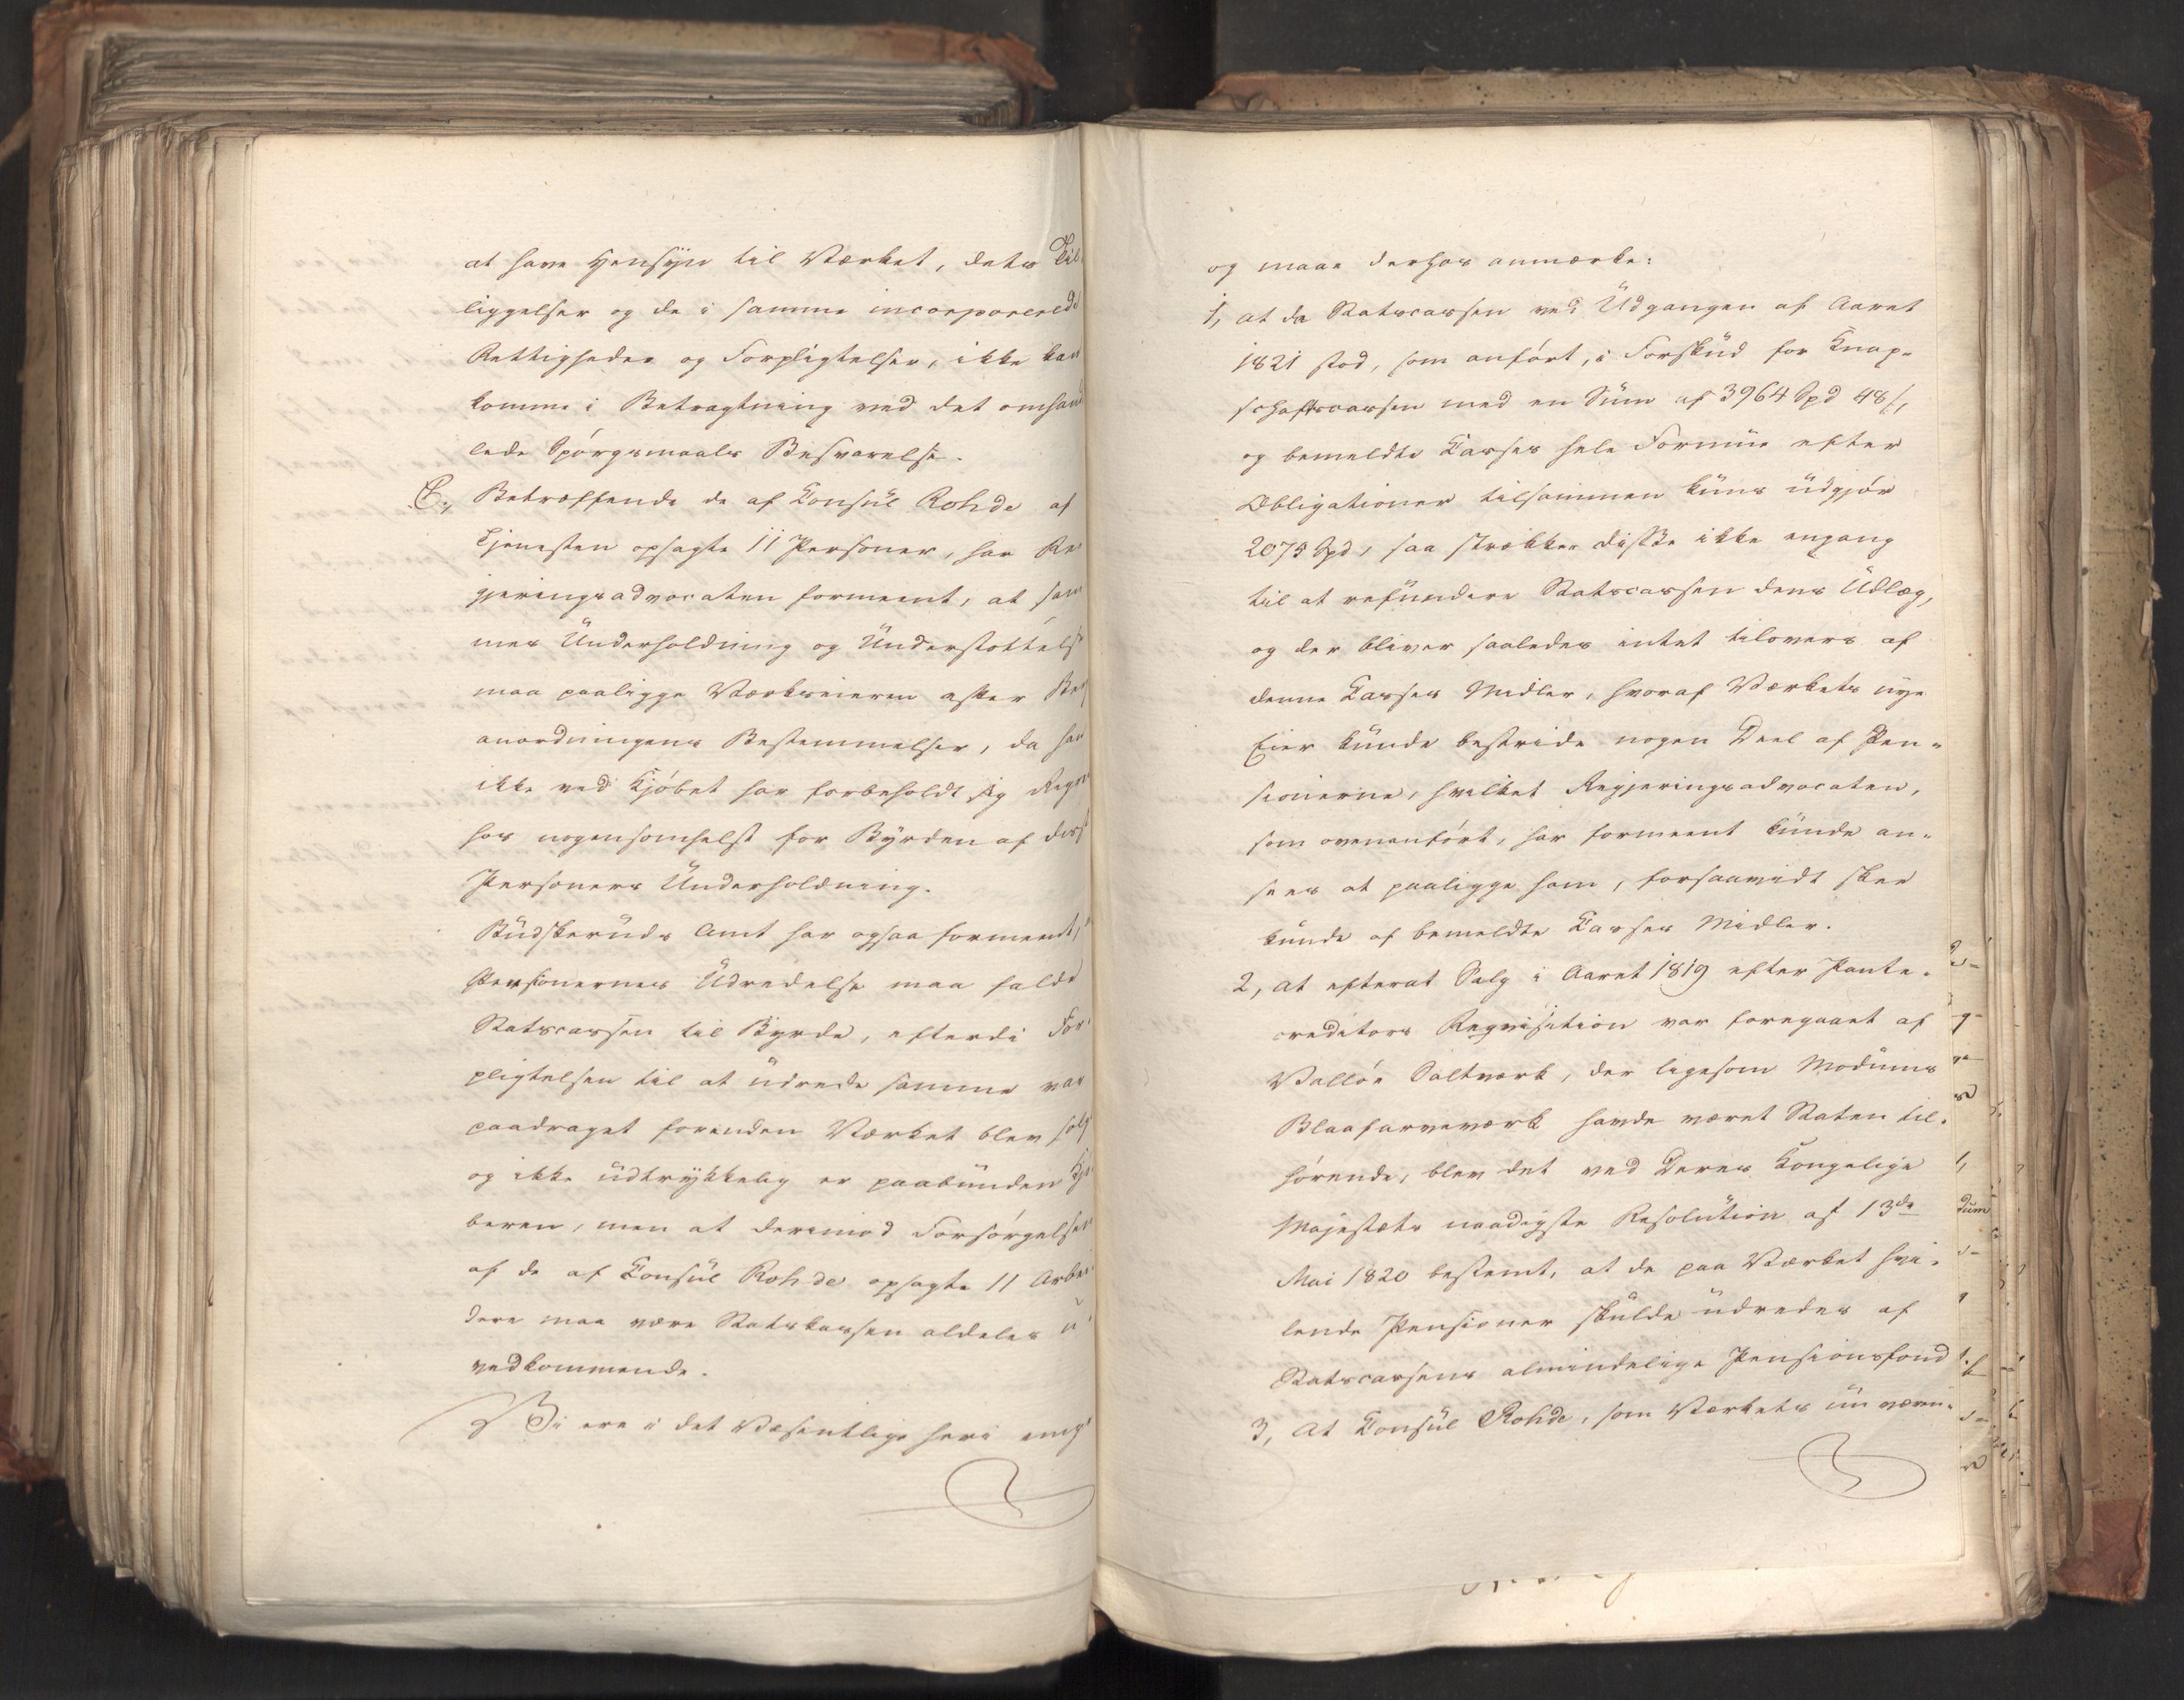 at have Hensyn til Værket, dets Til
liggelser og de i samme incorporerede
Rettigheder og Forpligtelser, ikke kan
komme i Betragtning ved det omhand
lede Spørgsmaals Besvarelse.
C., Betræffende de af Consul Rohde af
Tjenesten opsagte 11 Personer, har Re
gjeringsadvocaten formeent, at sam
mes Underholdning og Understøttelse
maa paaligge Værkseieren efter Berg
anordningens Bestemmelser, da han
ikke ved Kjøbet har forbeholdt sig Regres
hos nogensomhelst for Byrden af disse
Personers Underholdning.
Budskeruds Amt har ogsaa formeent,
Pensionernes Udredelse maa falde
Statscassen til Byrde, efterdi For
pligtelsen til at udrede samme var
paadraget forinden Værket blev solgt
og ikke udtrykkelig er paabunden Kjø
beren, men at derimod Forsørgelsen
af de af Consul Rohde opsagte 11 Arbei
dere maa være Statskassen aldeles u
vedkommende.
Vi ere i det Væsentlige heri enige
og maae derhos anmærke:
1, at da Statscassen ved Udgangen af Aaret
1821 stod, som anført, i Forskud for Knap-
schaftscassen med en Sum af 3964 Spd 48 s,
og bemeldte Casses hele Formue efter
Obligationer tilsammen kuns udgjør
2075 Spd, saa strækker disse ikke engang
til at refundere Statscassen dens Udlæg,
og der bliver saaledes intet tilovers af
denne Casses Midler, hvoraf Værkets nye
Eier kunde bestride nogen Deel af Pen-
sionerne, hvilket Regjeringsadvocaten,
som ovenanført, har formeent kunde an-
sees at paaligge ham, forsaavidt skee
kunde af bemeldte Casses Midler.
2, at efterat Salg i Aaret 1819 efter Pante-
creditors Reqvisition var foregaaet af
Valløe Saltværk, der ligesom Modums
Blaafarveværk havde været Staten til-
hørende, blev det ved Deres Kongelige
Majestæts naadigste Resolution af 13de
Mai 1820 bestemt, at de paa Værket hvi-
lende Pensioner skulde udredes af
Statscassens almindelige Pensionsfond
3, At Consul Rohde, som Værkets nu væren-